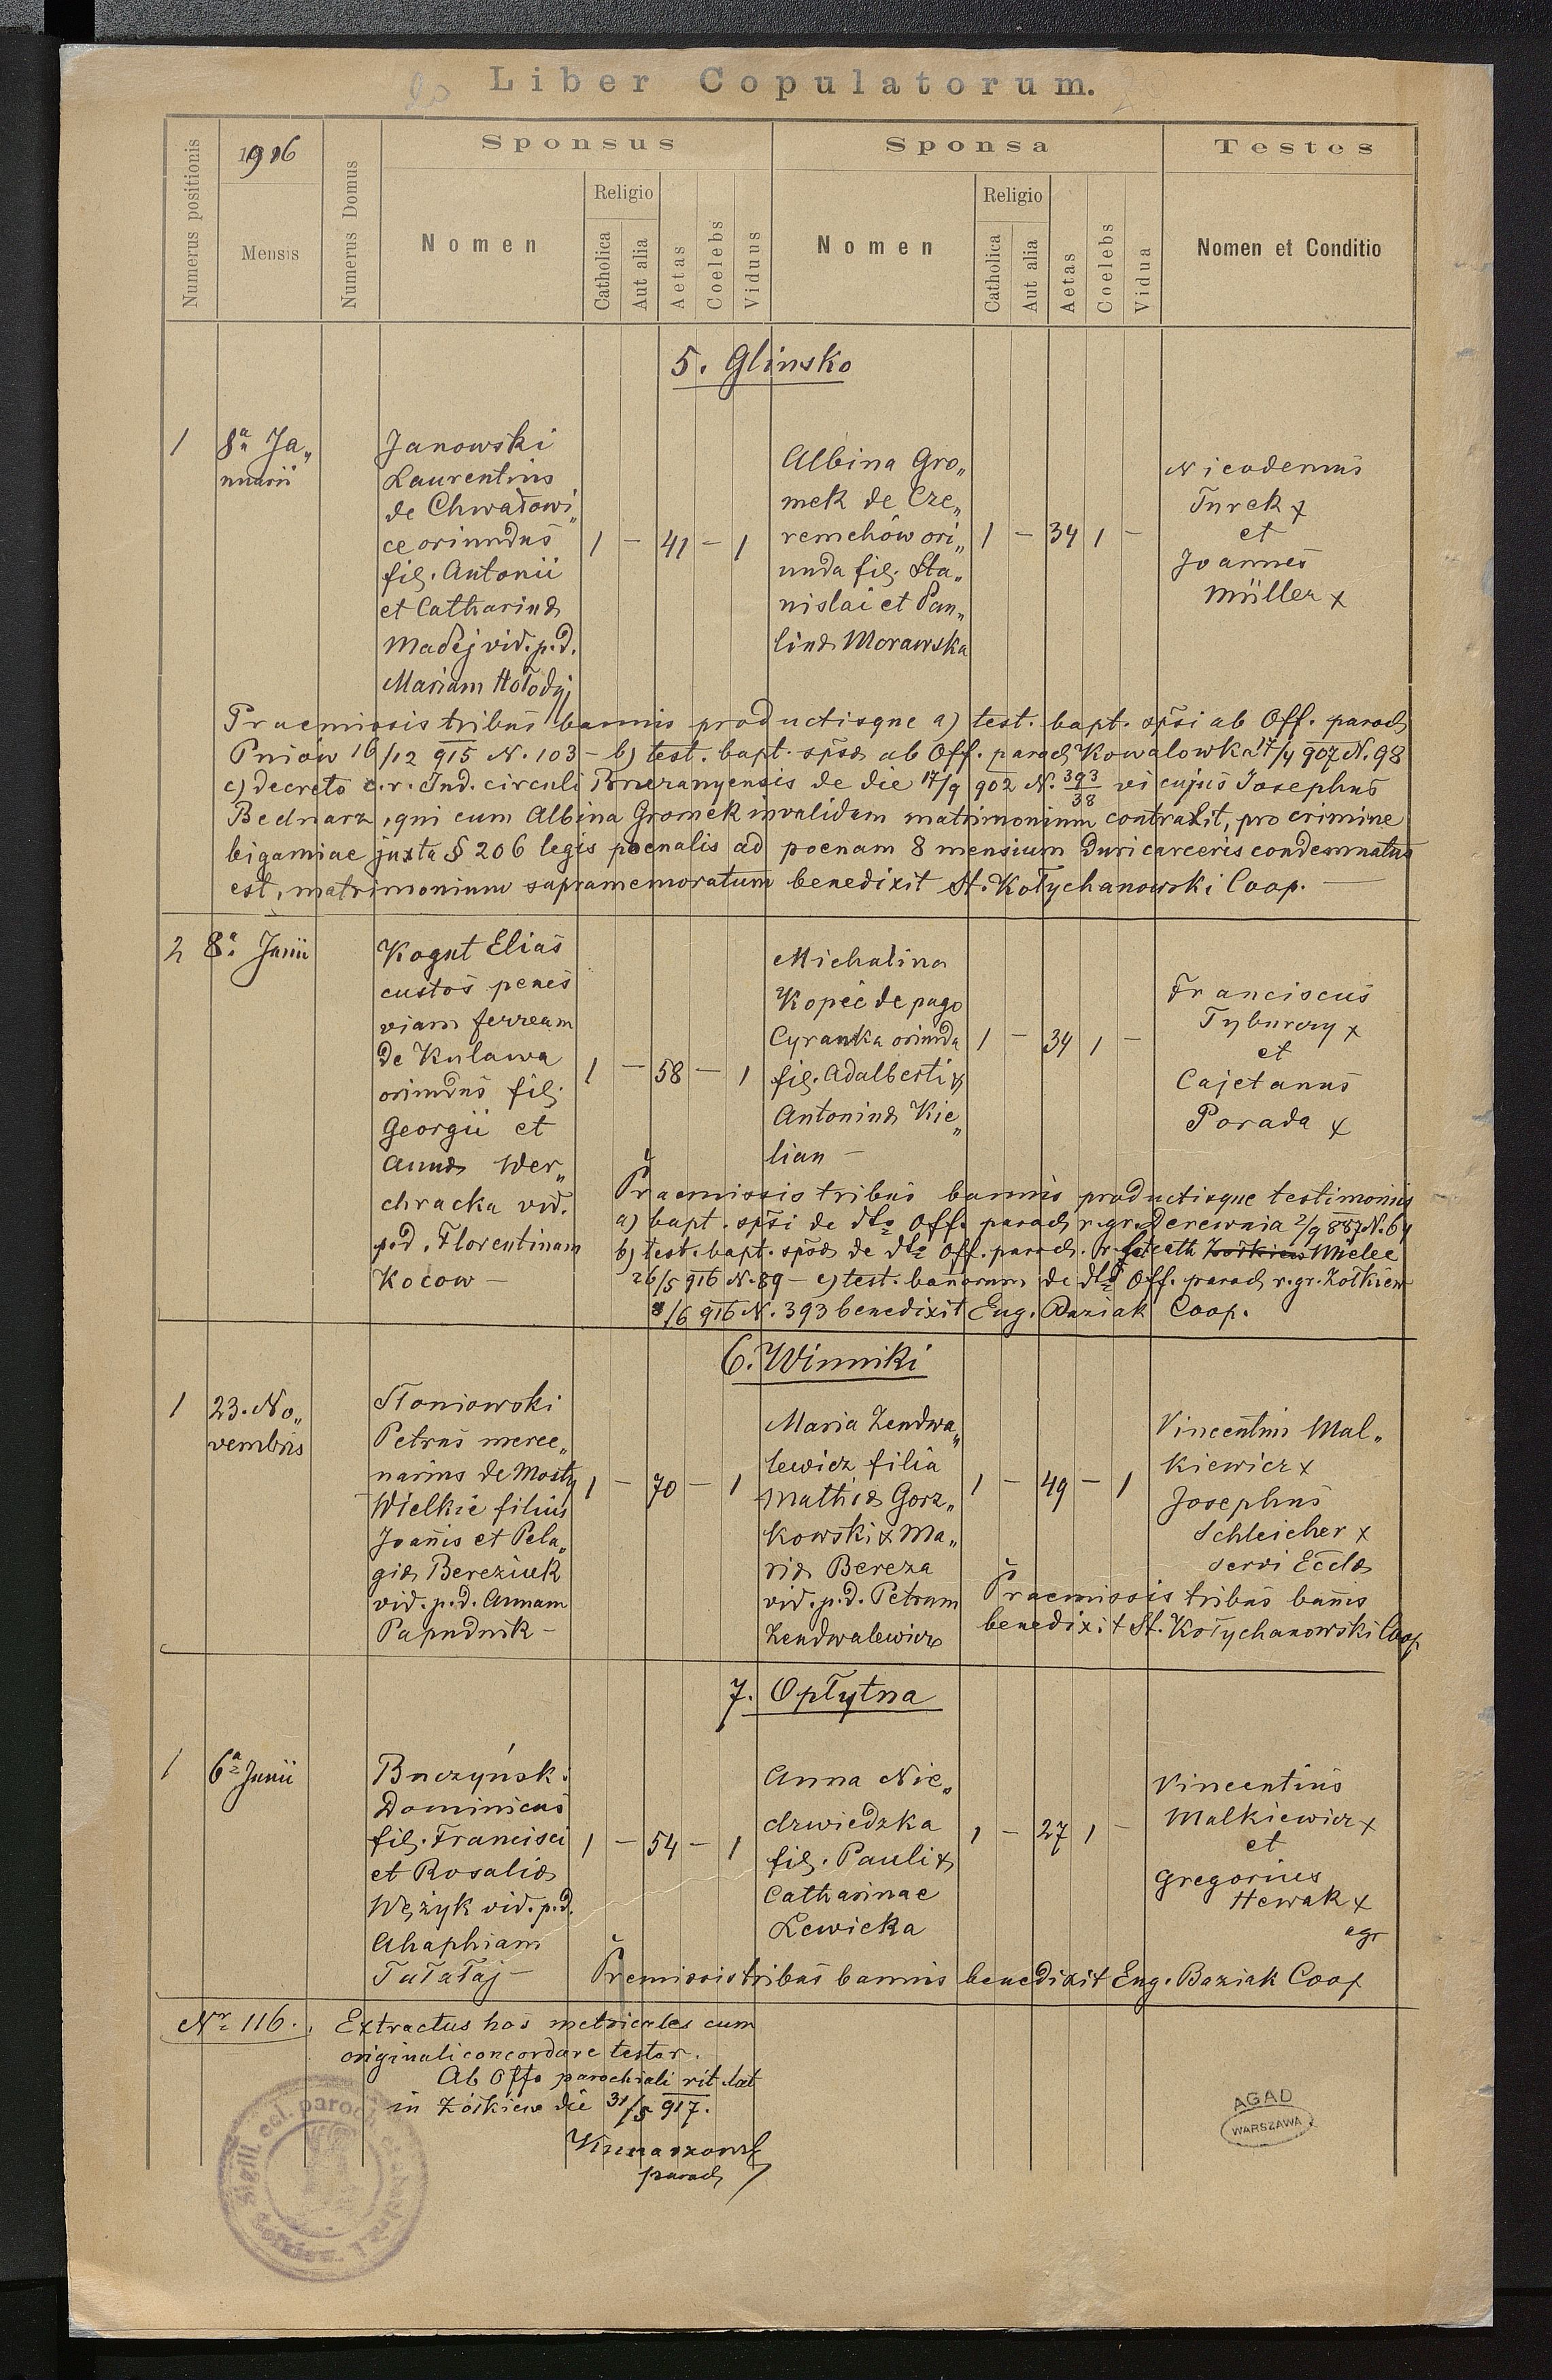 Liber Copulatorum.
Numerus positionis
1916
Mensis
Numerus Domus
Sponsus
Nomen
Religio
Catholica
Aut alia
Aetas
Coelebs
Viduus
Sponsa
Nomen
Religio
Catholica
Aut alia
Aetas
Coelebs
Vidua
Testes
Nomen et Conditio
5. Glinsko
1
8ª Ja„
nuarii
Janowski
Laurentius
de Chwałowi„
ce oriundus
fil. Antonii
et Catharinæ
Madej vid. p.d.
Mariam Hołodyj
1 – 41 – 1
Albina Gro„
mek de Cze„
remchów ori„
unda fil. Sta„
nislai et Pau„
linæ Morawska
1 – 34 1 –
Nicodemus
Turek x
et
Joannes
Müller x
Praemissis tribus bannis productisque a) test. bapt. spsi ab Off. paroch
Pniów 16/12 915 N. 103 – b) test. bapt. spsæ ab Off. paroch Kowalowka 17/4 907 N. 98
c) decreto c. r. Jud. circuli Buczanyensis de die 17/9 902 N. 393/38 vi cujus Josephus
Bednarz, qui cum Albina Gromek invalidum matrimonium contraxit, pro crimine
bigamiae juxta § 206 legis poenalis ad poenam 8 mensium duri carceris condemnatus
est, matrimonium supramemoratum benedixit St. Kołychanowski Coop. –
2
8ª Junii
Kogut Elias
custos penes
viam ferream
de Kulawa
oriundus fil.
Georgii et
Annæ Wer„
chracka vid.
p.d. Florentinam
Kocow –
1 – 58 – 1
Michalina
Kopeć de pago
Cyranka oriunda
fil. Adalberti &
Antoninæ Kie„
lian –
1 – 34 1 –
Franciscus
Tyburczy x
et
Cajetanus
Porada x
Praemissis tribus bannis productisque testimoniis
a) bapt. spsi de dto Off. paroch r. gr. Derewnia 2/9 887 N. 64
b) test. bapt. spsæ de dto Off. paroch. Mielec
26/5 916 N. 89 – c) test. bannorum de dto Off. paroch r. gr. Żółkiew
8/6 916 N. 393 benedixit Eug. Baziak Coop.
6. Winniki
1
23. No„
vembris
Słoniowski
Petrus merce„
narius de Mosty
Wielkie filius
Joannis et Pela„
giæ Bereziuk
vid. p.d. Annam
Papudnik –
1 – 70 – 1
Maria Zendwa„
lewicz filia
Mathiæ Gorz„
kowski & Ma„
riæ Bereza
vid. p.d. Petrum
Zendwalewicz
1 – 49 – 1
Vincentius Mal„
kiewicz x
Josephus
Schleicher x
servi Eccl
Praemissis tribus bannis
benedixit St. Kołychanowski Coop
7. Opłytna
1
6ª Junii
Buczyński
Dominicus
fil. Francisci
et Rosaliæ
Wężyk vid. p.d.
Ahaphiam
Tałałaj –
1 – 54 – 1
Anna Nie„
dzwiedzka
fil. Pauli &
Catharinae
Lewicka
1 – 27 1 –
Vincentius
Malkiewicz x
et
Gregorius
Hewak x
agr
Premissis tribus bannis benedixit Eug. Baziak Coop
Nr 116.
Extractus hos metricales cum
originali concordare testor.
Ab Offo parochiali rit. lat
in Żółkiew die 31/5 917.
paroch
AGAD
WARSZAWA